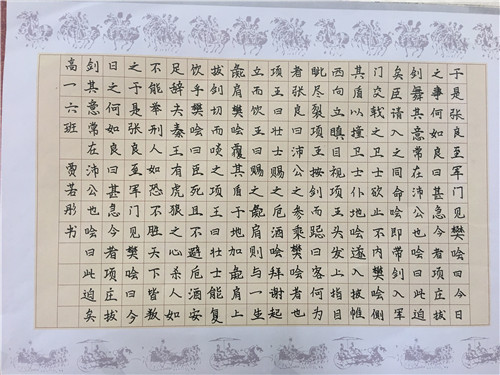 于是张良至军门见樊哙曰今日
之事何如良曰甚急今者项庄拔
剑舞其意常在沛公也哙曰此迫
矣臣请入之同命哙即带剑入军
门交戟之卫士欲止不内樊哙侧
其盾以撞之卫士仆地遂入披帷
西向立瞋目视项王头发上指目
眦尽裂项王按剑而跽曰客何为
者张良曰沛公之参乘樊哙者也
项王曰壮士赐之卮酒哙拜谢起
立而饮王曰赐之彘肩则与一生
彘肩樊哙覆其盾于地加彘肩上
拔剑切而啖之项王曰壮士能复
饮乎樊哙曰臣死且不避卮酒安
足辞夫秦王有虎狼之心杀人如
不能举刑人如恐不胜天下皆
之于是张良至军门见樊哙曰今
日之何如良曰甚急今者项庄拔
剑其意常在沛公也哙曰此迫矣
高一六班 贾若彤书